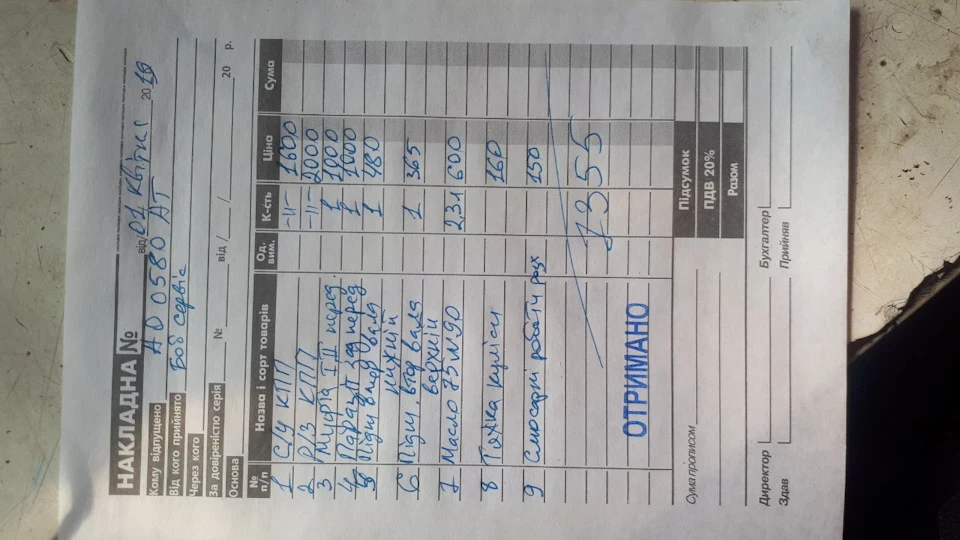 НАКЛАДНА № від 01 квітня 20
Кому відпущено АО 0580 АТ
Від кого прийнято Боб сервіс
Через кого
За довіреністю серія № від / / 20 р.
Основа
№ п/п Назва і сорт товарів Од. вим. К-сть Ціна Сума
1 С/у КПП -||- 1600
2 Р/З КПП -||- 2000
3 Муфта III перед. 1 1000
4 перед 1 1000
5 Підш втор вала нижній 1 480
6 Підш втор вала верхній 1 365
7 Масло 75W90 2,3л 600
8 Тяжка куліси 160
9 Слюсарні роботи 150
7355
ОТРИМАНО
Підсумок
ПДВ 20%
Разом
Сума прописом
Директор Бухгалтер
Здав Прийняв